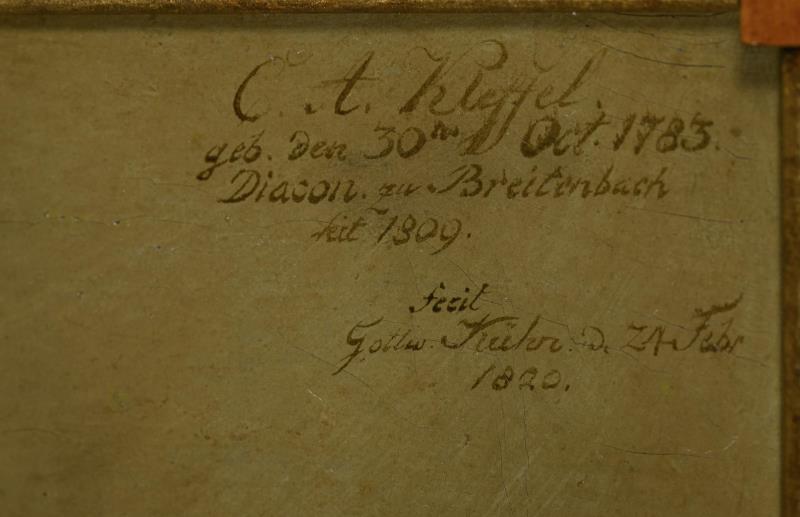 C. A. Kleffel.
geb. den 30ten Oct. 1783.
Diacon. zu Breitenbach
seit 1809.
fecit
Gottw. Kühn. d. 24 Febr
1820.